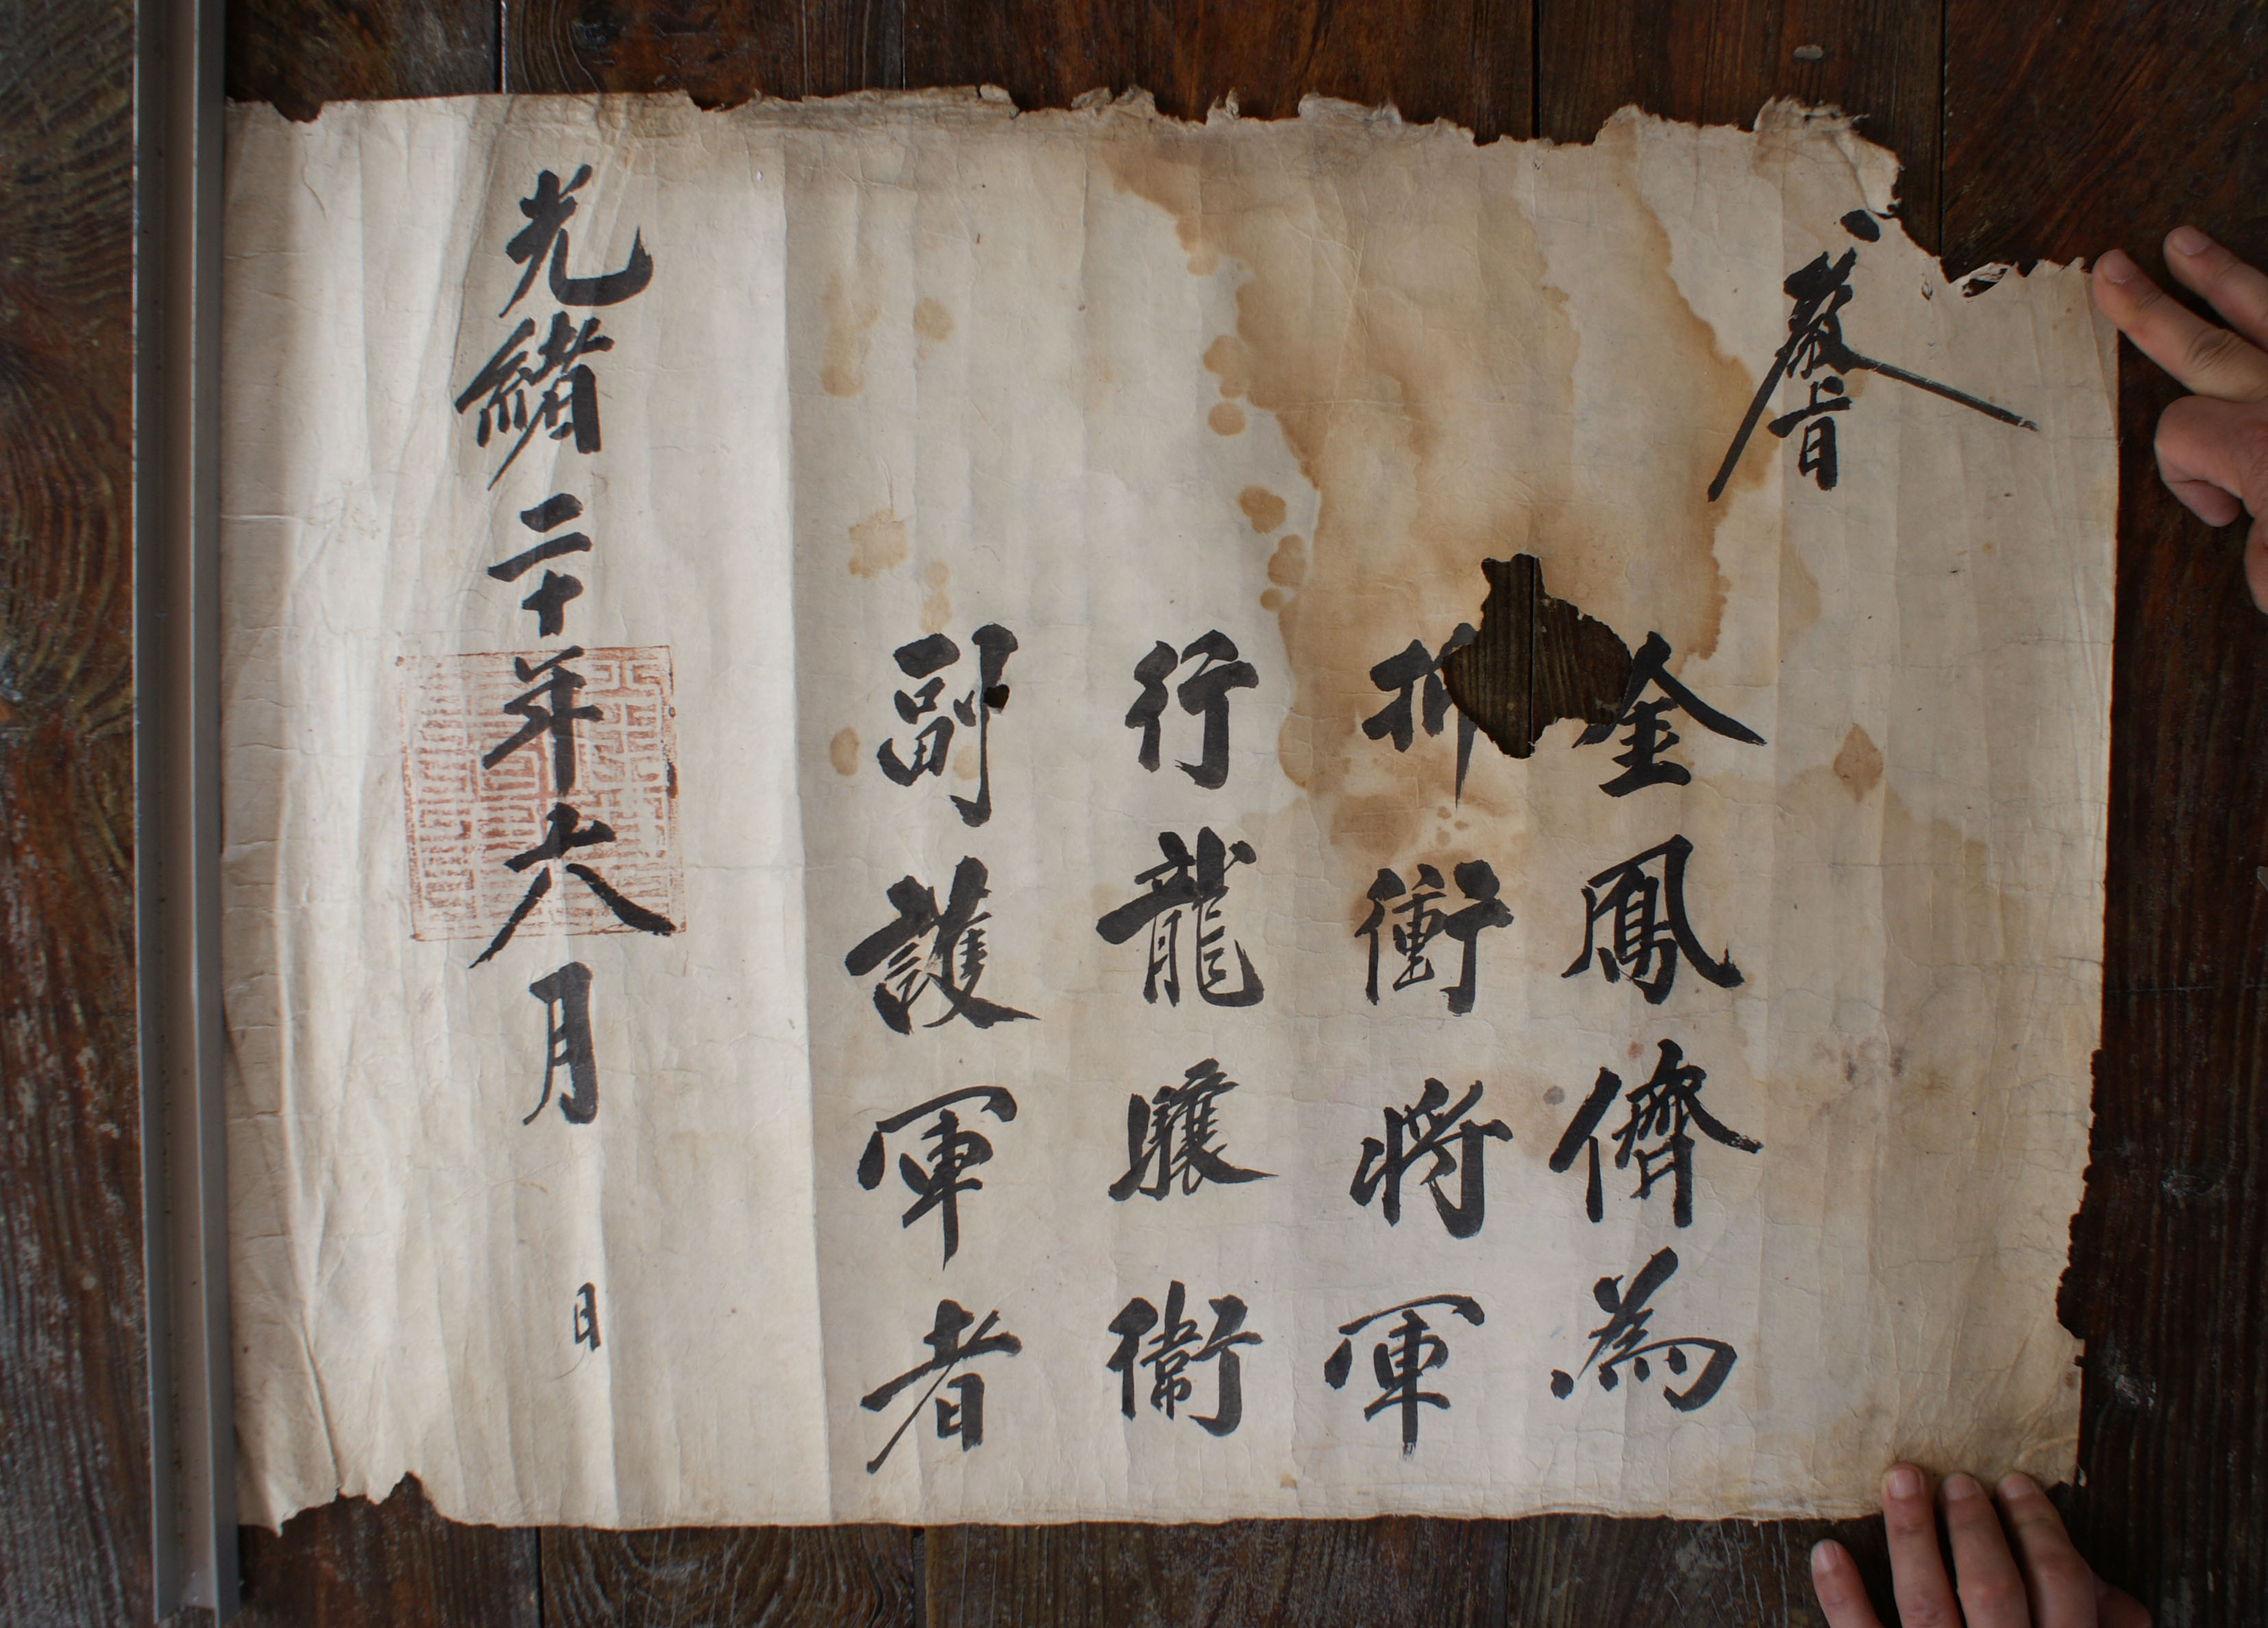 敎旨
金鳳儕為
折衝將軍
行龍驤衛
副護軍者
光緖二十年六月 日